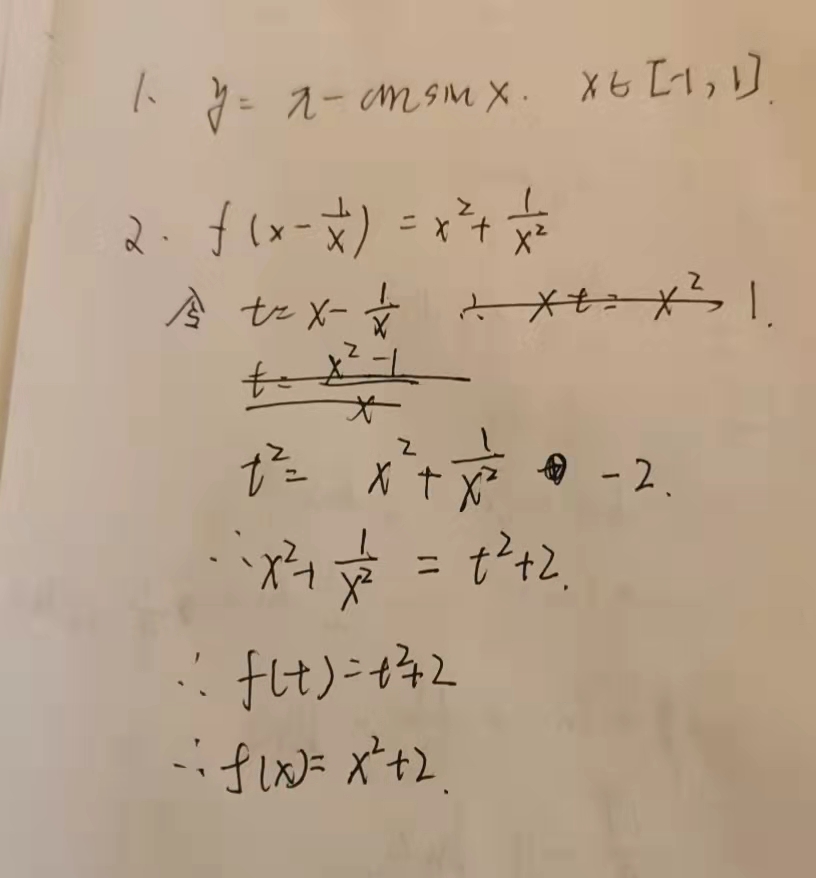 1. y = π - arcsin x. x∈[-1,1].
2. f(x-1/x) = x²+1/x²
令 t = x-1/x ∴ xt = x² 1.
t = (x²-1)/x
t² = x²+1/x² -2.
∴ x²+1/x² = t²+2.
∴ f(t)=t²+2
∴ f(x)= x²+2.